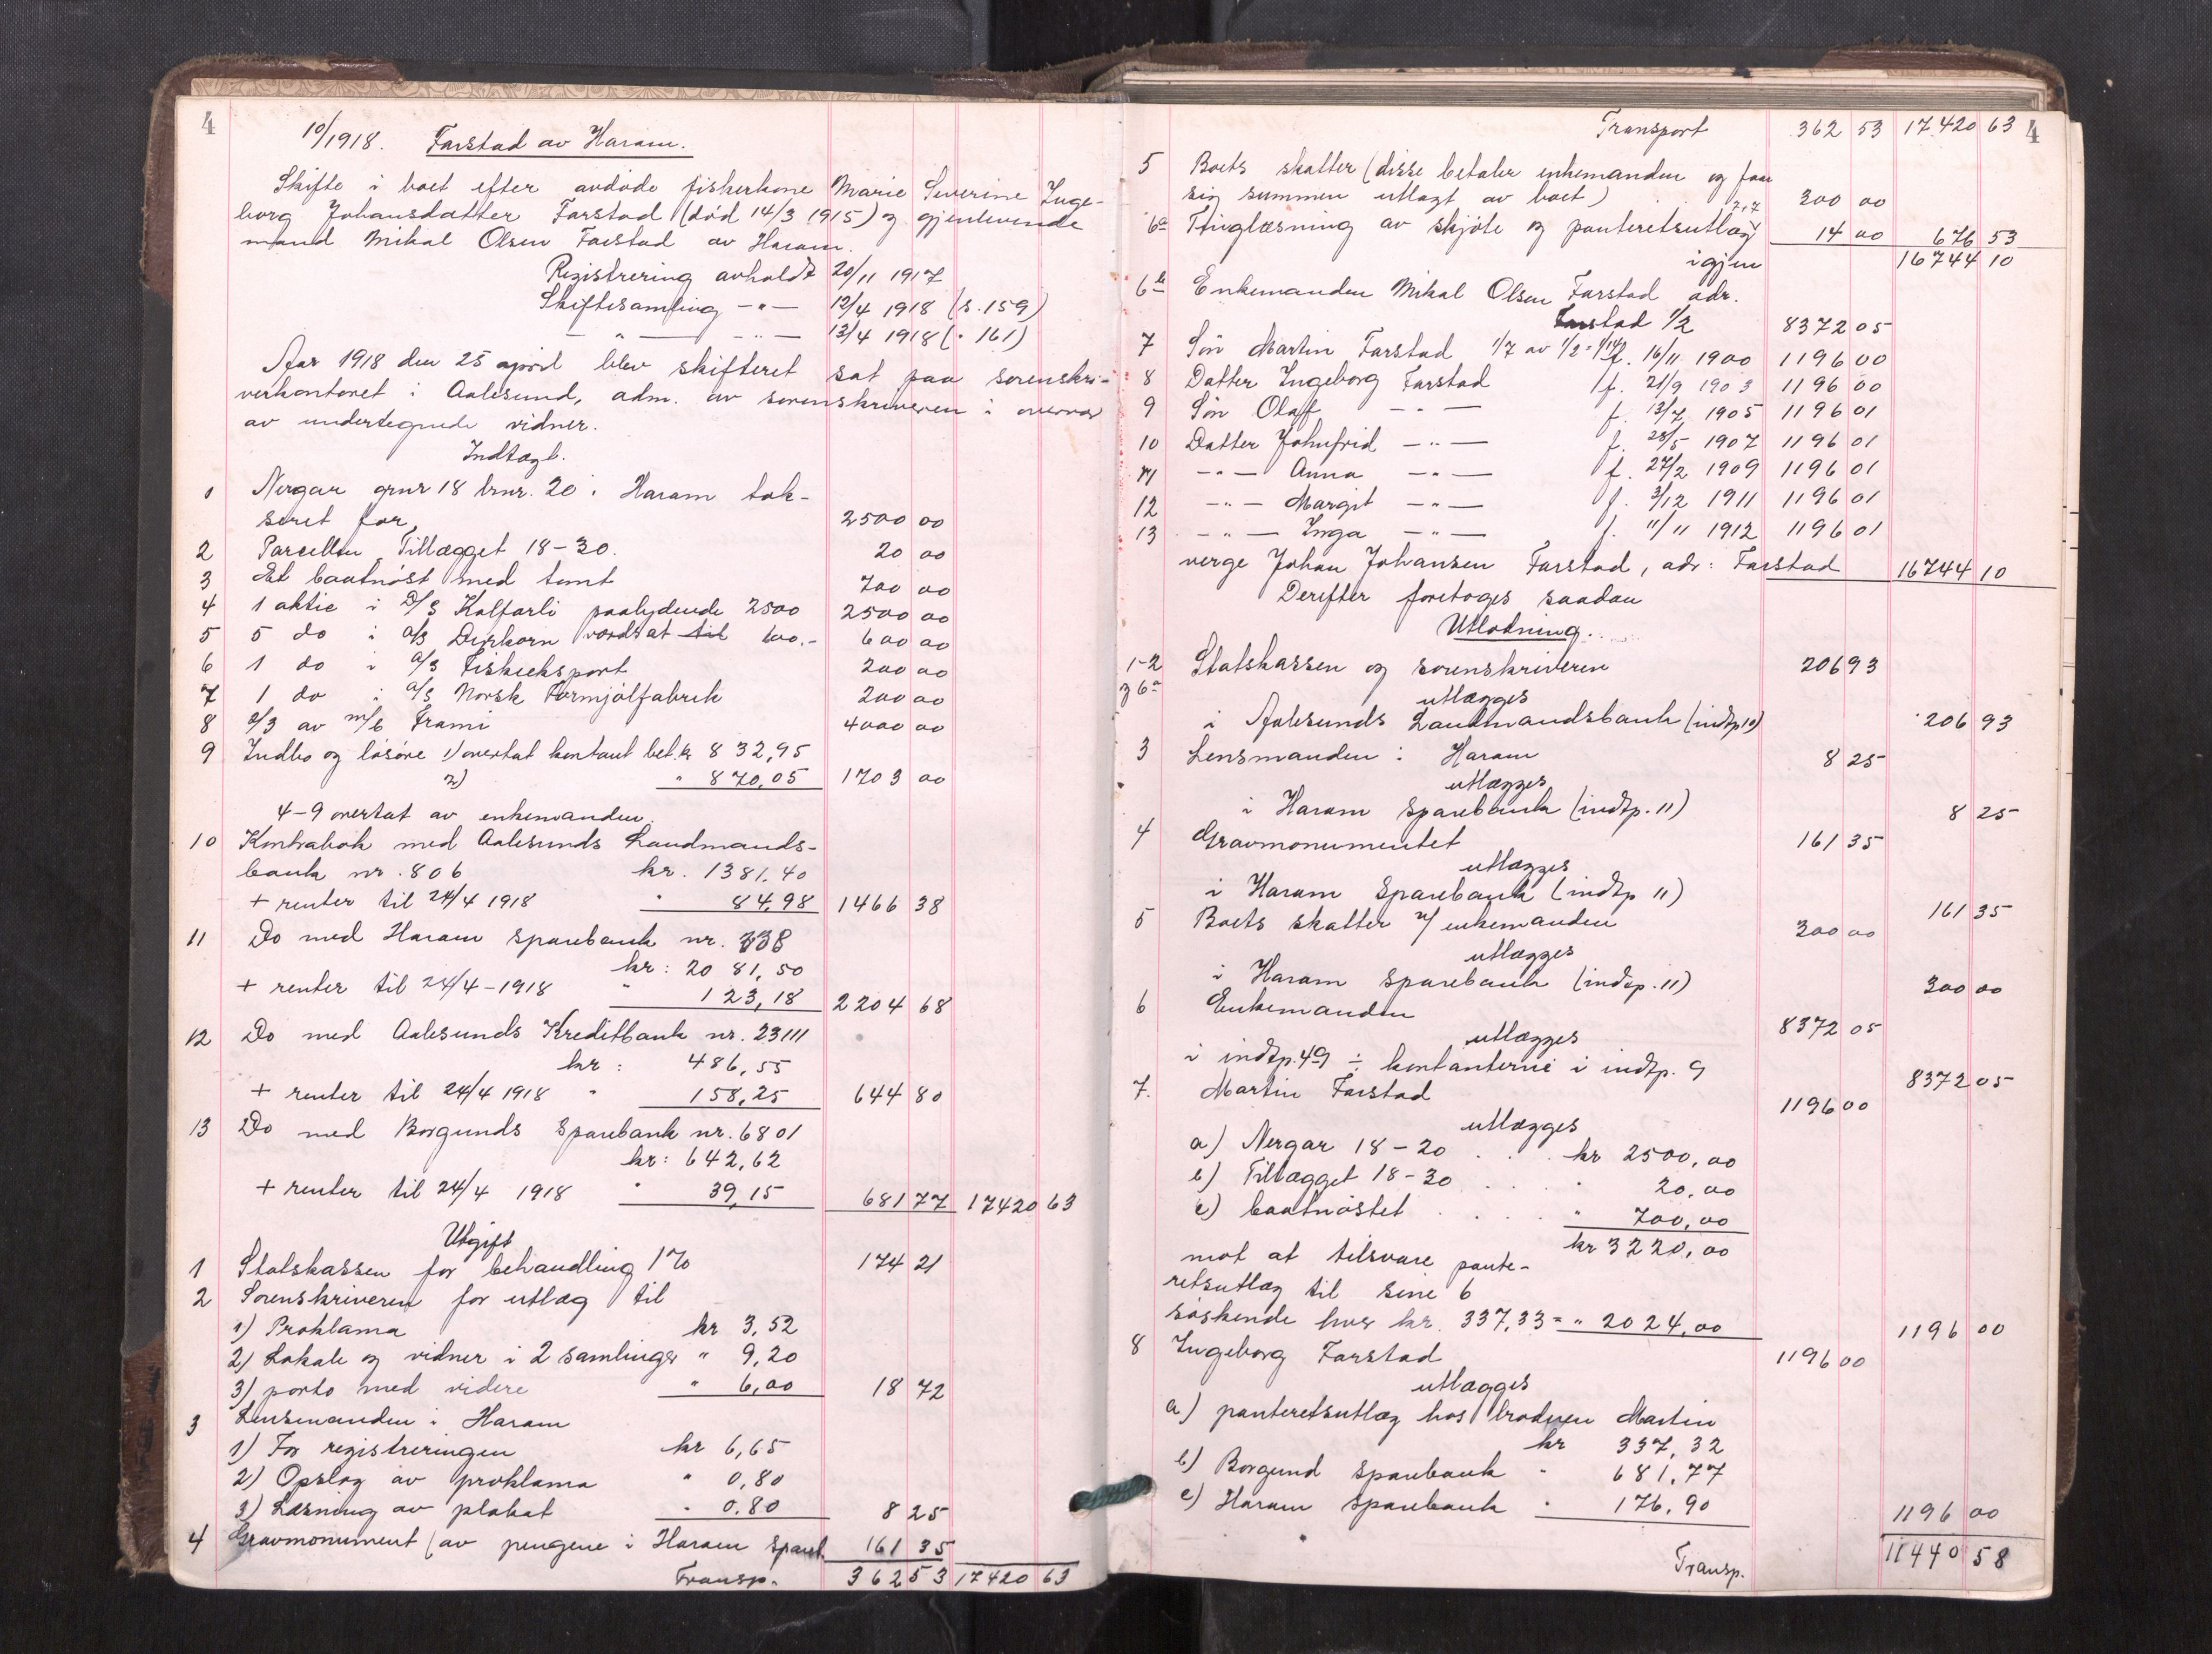 4
10/1918. Farstad av Haram.
Skifte i boet efter avdøde fiskerkone Marie Severine Inge-
borg Johansdatter Farstad (død 14/3 1915) og gjenlevende
mand Mikal Olsen Farstad av Haram.
Registrering avholdt 20/11 1917
Skiftesamling -"- 12/4 1918 (s. 159)
- " - -"- 13/4 1918 (" 161)
Aar 1918 den 25 april blev skifteret sat paa sorenskri-
verkontoret i Aalesund, adm. av sorenskriveren i overvær
av undertegnede vidner.
Indtægt.
1 Nergar gnr 18 brnr. 20 i Haram tak-
seret for, 2500 00
2 Parcellen Tillægget 18-30. 20 00
3 Et baatnøst med tomt 700 00
4 1 aktie i D/S Kalfarli paalydende 2500 2500 00
5 5 do i a/s Dyrkorn værdsat til 600.- 600 00
6 1 do i a/s Fiskeeksport 200 00
7 1 do i a/s Norsk Formjølfabrik 200 00
8 2/3 av m/b Frami 4000 00
9 Indbo og løsøre 1) overtat kontant bet. kr 832,95
2) " 870,05 1703 00
4-9 overtat av enkemanden.
10 Kontrabok med Aalesunds Landmands-
bank nr. 806 kr. 1381,40
+ renter til 24/4 1918 " 84,98 1466 38
11 Do med Haram Sparebank nr. 338
kr: 2081,50
+ renter til 24/4-1918 " 123,18 2204 68
12 Do med Aalesunds Kreditbank nr. 23111
kr: 486,55
+ renter til 24/4 1918 " 158,25 644 80
13 Do med Borgunds Sparebank nr. 6801
kr: 642,62
+ renter til 24/4 1918 " 39,15 681 77 17420 63
Utgift
1 Statskassen for behandling 1% 174 21
2 Sorenskriveren for utlæg til
1) Proklama kr 3,52
2) Lokale og vidner i 2 samlinger " 9,20
3) porto med videre " 6,00 18 72
3 Lensmanden i Haram
1) For registreringen kr 6,65
2) Opslag av proklama " 0,80
3) Læsning av plakat " 0.80 8 25
4 Gravmonument (av pengene i Haram Spareb. 161 35
Transp. 362 53 17420 63
4
Transport 362 53 17.420 63
5 Boets skatter (disse betaler enkemanden og faar
sig summen utlagt av boet) 300 00
6a Thinglæsning av skjøte og panteretsutlæg 7+7 14 00 676 53
igjen 16744 10
6b Enkemanden Mikal Olsen Farstad adr.
Farstad 1/2 8372 05
7 Søn Martin Farstad 1/7 av 1/2 = 1/14 f. 16/11 1900 1196 00
8 Datter Ingeborg Farstad f. 21/9 1903 1196 00
9 Søn Olaf -"- f. 13/7 1905 1196 01
10 Datter Johnfrid -"- f. 28/5 1907 1196 01
11 -"- Anna -"- f. 27/2 1909 1196 01
12 -"- Margit -"- f. 3/12 1911 1196 01
13 -"- Inga -"- f. 11/11 1912 1196 01
verge Johan Johansen Farstad, adr: Farstad 16744 10
Derefter foretoges saadan
Utlodning.
1-2 Statskassen og sorenskriveren 206 93
og 6a utlægges
i Aalesunds Landmandsbank (indtp 10) 206 93
3 Lensmanden i Haram 8 25
utlægges
i Haram Sparebank (indtp. 11) 8 25
4 Gravmonumentet 161 35
utlægges
i Haram Sparebank (indtp 11) 161 35
5 Boets skatter v/ enkemanden 300 00
utlægges
i Haram Sparebank (indtp. 11) 300 00
6 Enkemanden 8372 05
utlægges
i indtp. 4-9 ÷ kontanterne i indtp. 9 8372 05
7. Martin Farstad 1196 00
utlægges
a) Nergar 18-20 . . . kr 2500,00
b) Tillægget 18-30 . . . " 20,00
c) baatnøstet . . . . " 700,00
kr 3220,00
mot at tilsvare pante-
retsutlæg til sine 6
søskende hver kr. 337,33 = " 2024,00 1196 00
8 Ingeborg Farstad 1196 00
utlægges
a) panteretsutlæg hos broderen Martin
kr 337,32
b) Borgund Sparebank " 681,77
c) Haram Sparebank " 176,90 1196 00
Transp. 11440 58